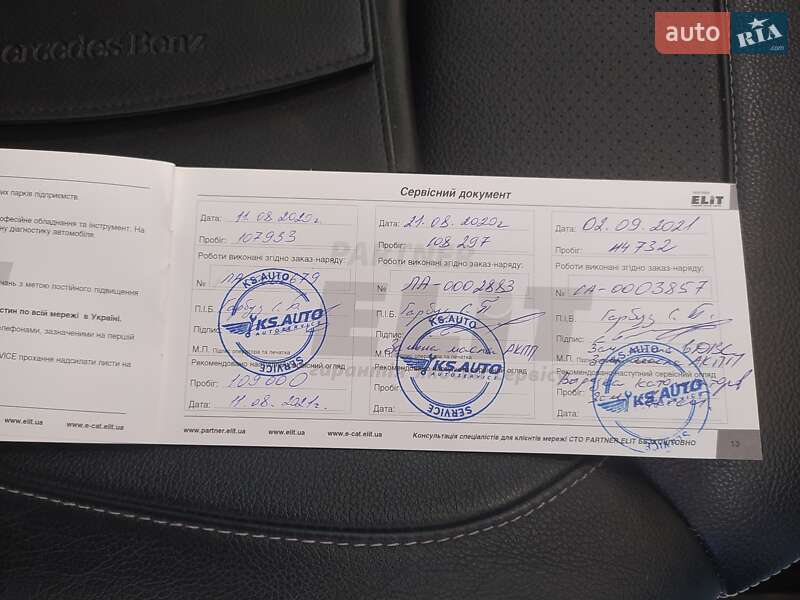 auto RIA.com
Mercedes-Benz
их парків підприємств.
офесійне обладнання та інструмент. На
ну діагностику автомобіля.
нань з метою постійного підвищення
стин по всій мережі в Україні.
елефонами, зазначеними на першій
VICE прохання надсилати листи на
www.elit.ua www.e-cat.elit.ua
Сервісний документ
PARTNER ELIT
Дата: 11.08.2020г
Пробіг: 107933
Роботи виконані згідно заказ-наряду:
№
П.І.Б. Гарбуз С.
Підпис:
М.П. Підпис оператора та печатка
Рекомендовано наступний сервісний огляд
Пробіг: 109000
Дата: 11.08.2021г.
KS.AUTO
KS.AUTO
AUTOSERVICE
SERVICE
Дата: 21.08.2020г
Пробіг: 108297
Роботи виконані згідно заказ-наряду:
№ ЛА-0002883
П.І.Б. Гарбуз С.П
Підпис:
М.П. Замена масла АКПП
Рекомендовано
Пробіг:
Дата:
KS.AUTO
KS.AUTO
AUTOSERVICE
SERVICE
Дата: 02.09.2021
Пробіг: 114732
Роботи виконані згідно заказ-наряду:
№ СА-0003857
П.І.Б. Гарбуз С.П.
Підпис:
М.П. АКПП
Рекомендовано наступний сервісний огляд
Пробіг:
Дата:
KS.AUTO
SERVICE
www.partner.elit.ua www.elit.ua www.e-cat.elit.ua
Консультація спеціалістів для клієнтів мережі СТО PARTNER ELIT БЕЗКОШТОВНО
13